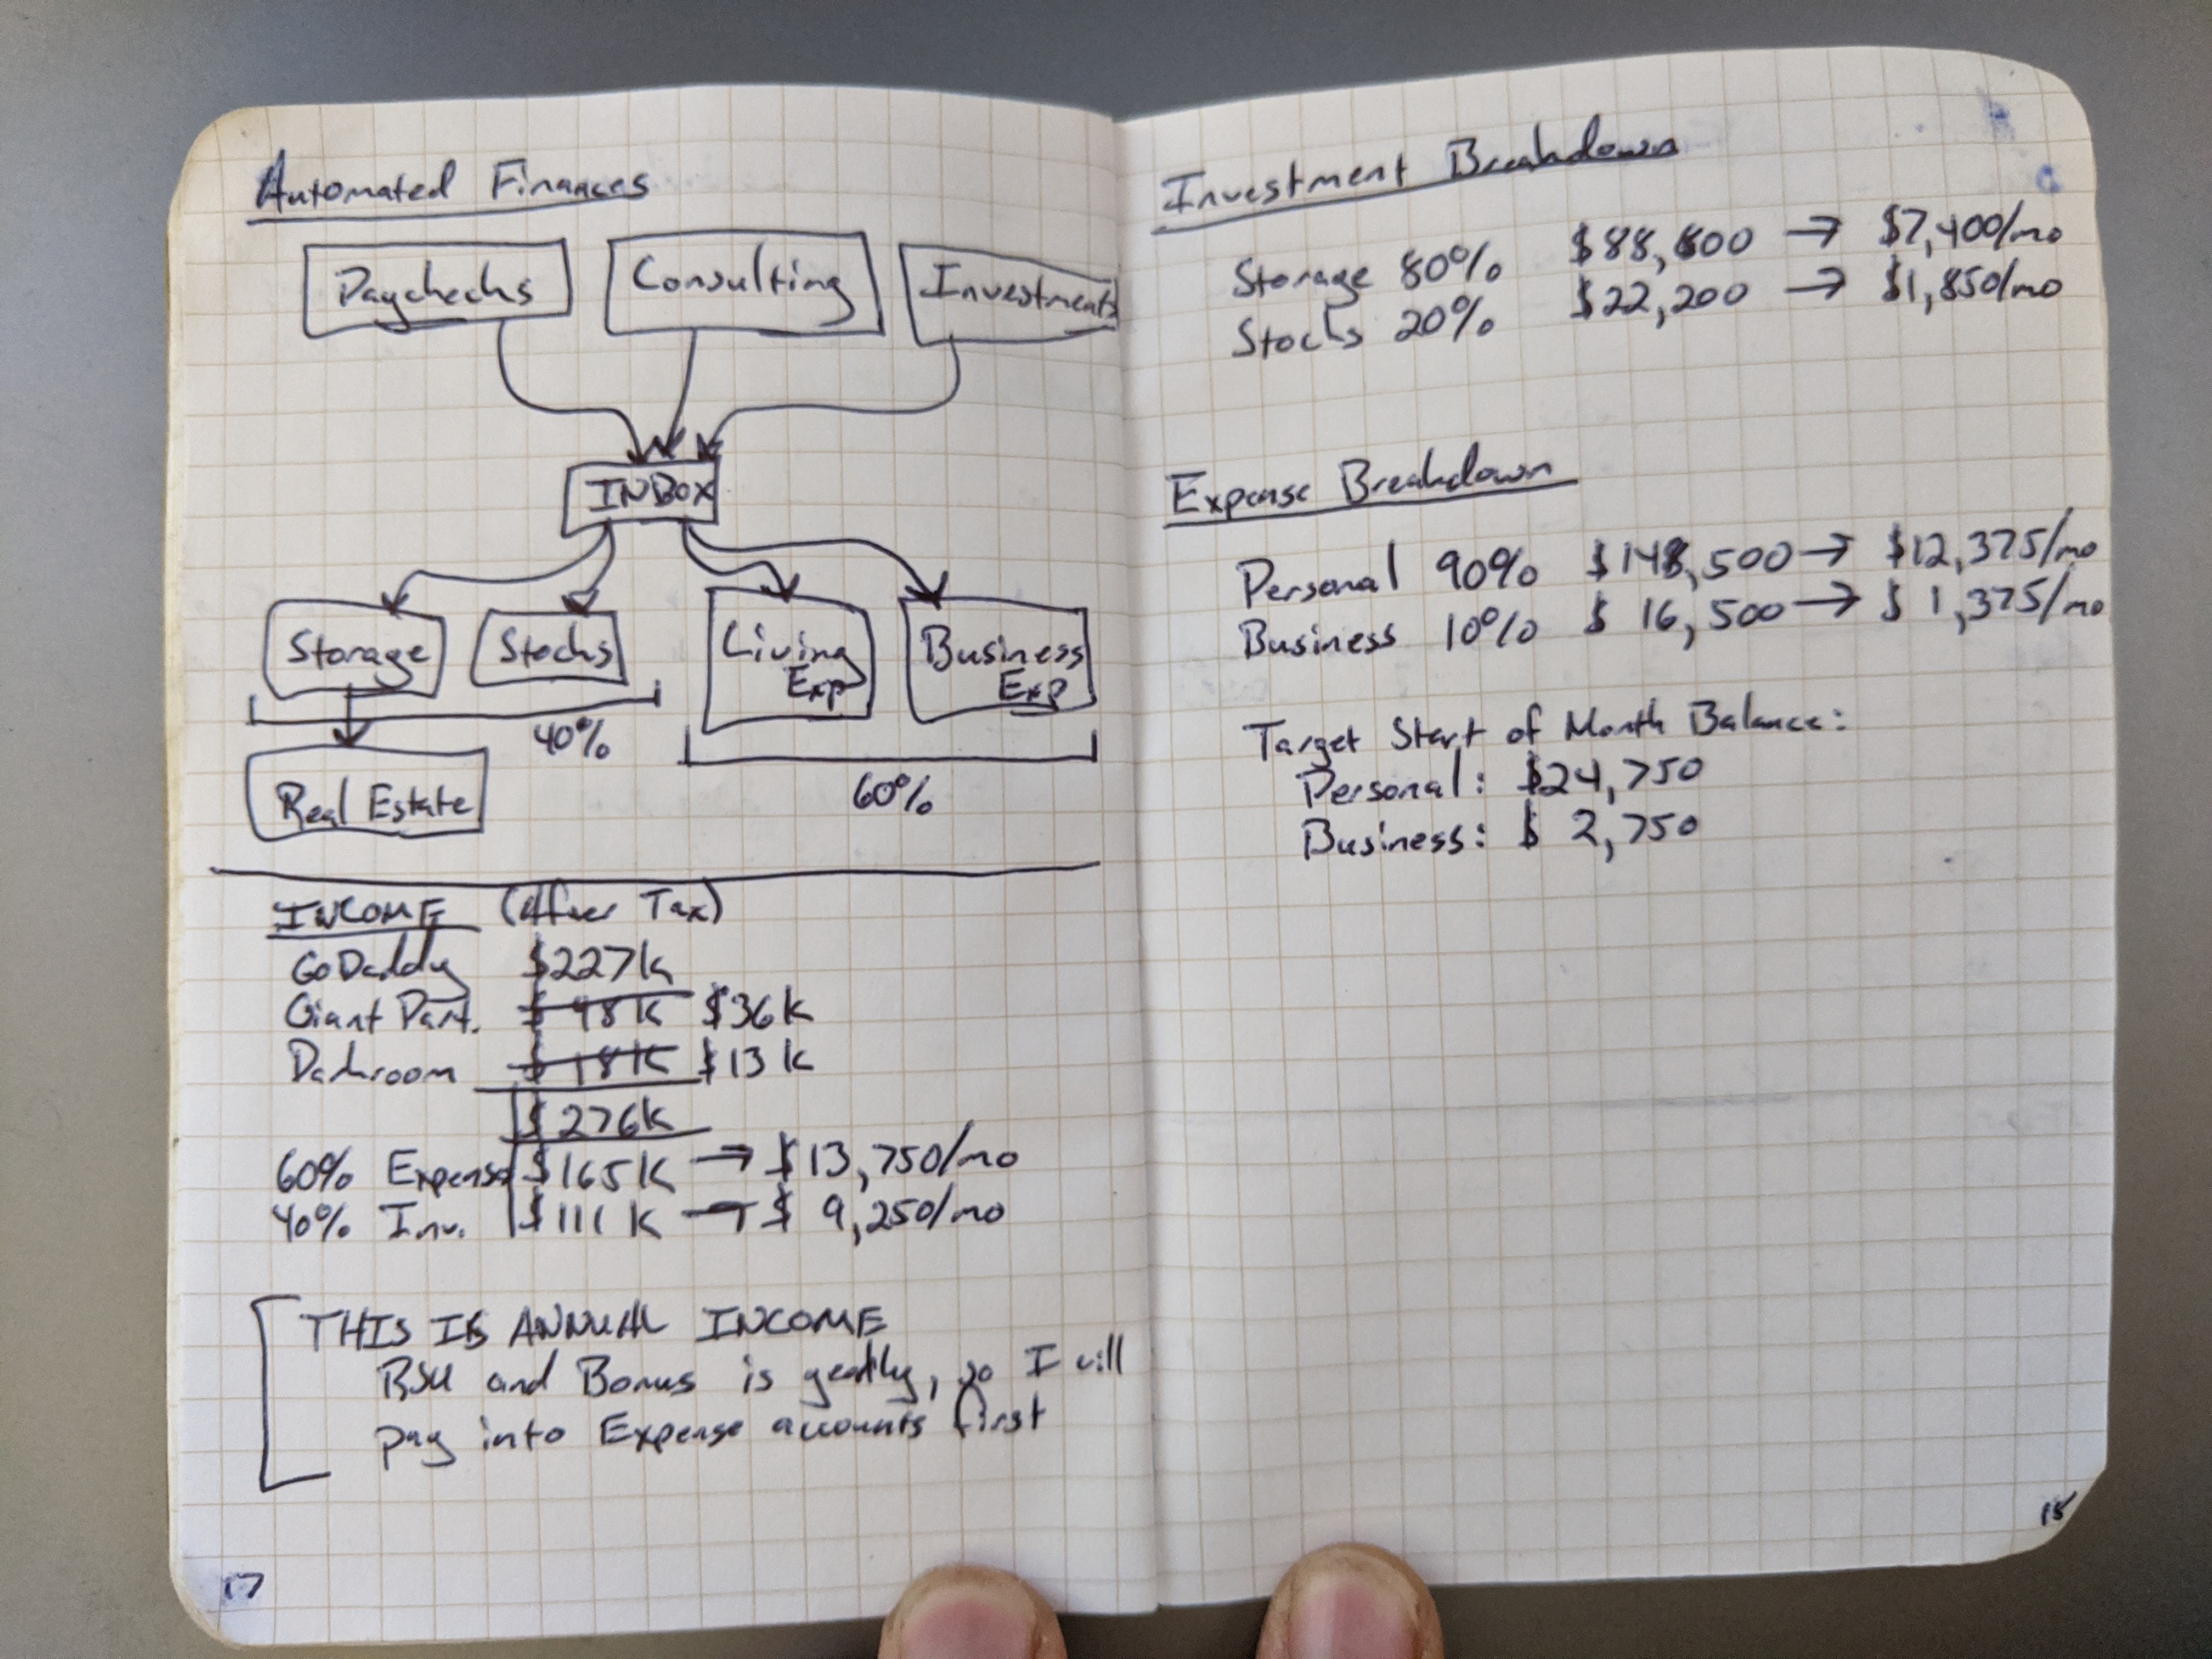 Automated Finances
Paychecks
Consulting
Investments
INBOX
Storage
Stocks
Living
Exp
Business
Exp
40%
60%
Real Estate
INCOME (After Tax)
GoDaddy $227k
Giant Part. $48k $36k
Darkroom $18k $13k
$276k
60% Expense $165k → $13,750/mo
40% Inv. $111k → $9,250/mo
THIS IS ANNUAL INCOME
RSU and Bonus is yearly, so I will
pay into Expense accounts first
17
Investment Breakdown
Storage 80% $88,800 → $7,400/mo
Stocks 20% $22,200 → $1,850/mo
Expense Breakdown
Personal 90% $148,500 → $12,375/mo
Business 10% $16,500 → $1,375/mo
Target Start of Month Balance:
Personal: $24,750
Business: $2,750
18